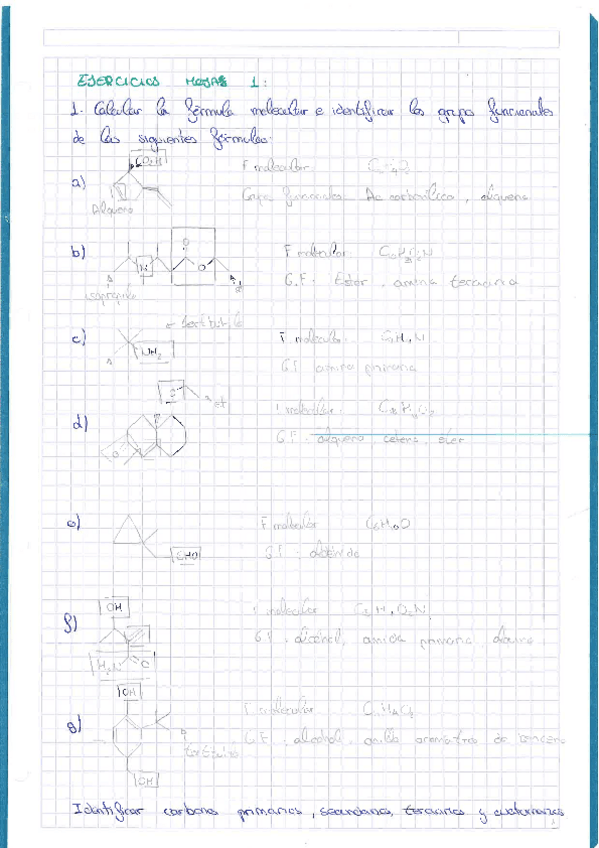 EJERCICIOS HOJAS 1:
1. Calcular la fórmula molecular e identificar los grupo funcionales
de las siguientes fórmulas:
a)
CO2H
Alqueno
F molecular:
Grupo funcionales: Ac carboxílico, alqueno
b)
N
O
O
isopropilo
et
F molecular
G.F: Ester, amina terciaria
c)
tertbutilo
NH2
F molecular:
GF amina primaria
d)
et
O
F molecular:
G.F: alqueno, cetona, eter
e)
CHO
F molecular
G.F: aldehido
f)
OH
H2N
O
F molecular
G.F: alcohol, amida primaria, alqueno
g)
OH
OH
tertbutilo
F molecular
G.F: alcohol, anillo aromático de benceno
Identificar carbonos primarios, secundarios, terciarios y cuaternarios